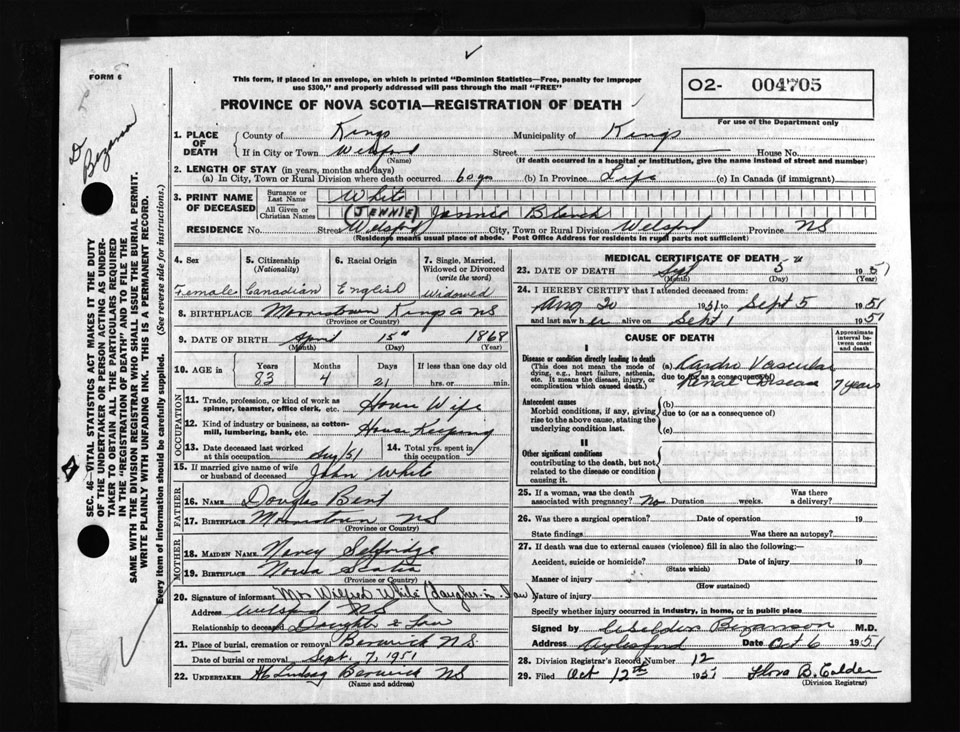 FORM 6
This form, if placed in an envelope, on which is printed "Dominion Statistics—Free, penalty for improper
use $300," and properly addressed will pass through the mail "FREE"
O2- 004705
For use of the Department only
PROVINCE OF NOVA SCOTIA—REGISTRATION OF DEATH
D Bezanson
SEC. 46—VITAL STATISTICS ACT MAKES IT THE DUTY
OF THE UNDERTAKER OR PERSON ACTING AS UNDER-
TAKER TO OBTAIN ALL THE PARTICULARS REQUIRED
IN THE "REGISTRATION OF DEATH" AND TO FILE THE
SAME WITH THE DIVISION REGISTRAR WHO SHALL ISSUE THE BURIAL PERMIT.
WRITE PLAINLY WITH UNFADING INK. THIS IS A PERMANENT RECORD.
Every item of information should be carefully supplied. (See reverse side for instructions.)
1. PLACE OF DEATH County of Kings Municipality of Kings
If in City or Town Welsford Street House No.
(Name) (If death occurred in a hospital or institution, give the name instead of street and number)
2. LENGTH OF STAY (in years, months and days)
(a) In City, Town or Rural Division where death occurred 60 yrs (b) In Province Life (c) In Canada (if immigrant)
3. PRINT NAME OF DECEASED Surname or Last Name White
All Given or Christian Names (JENNIE) Jannie Blanch
RESIDENCE No. Street Welsford City, Town or Rural Division Welsford Province NS
(Residence means usual place of abode. Post Office Address for residents in rural parts not sufficient)
4. Sex 5. Citizenship (Nationality) 6. Racial Origin 7. Single, Married, Widowed or Divorced (write the word)
Female Canadian English Widowed
8. BIRTHPLACE Morristown Kings Co NS
(Province or Country)
9. DATE OF BIRTH April 15th 1868
(Month) (Day) (Year)
10. AGE in Years Months Days If less than one day old
83 4 21 hrs. or min.
OCCUPATION
11. Trade, profession, or kind of work as
spinner, teamster, office clerk, etc. House Wife
12. Kind of industry or business, as cotton-
mill, lumbering, bank, etc. House Keeping
13. Date deceased last worked at this occupation Aug 51 14. Total yrs. spent in this occupation
15. If married give name of wife or husband of deceased John White
FATHER
16. NAME Douglas Bent
17. BIRTHPLACE Morristown NS
(Province or Country)
MOTHER
18. MAIDEN NAME Nancy Selfridge
19. BIRTHPLACE Nova Scotia
(Province or Country)
20. Signature of informant Mrs Wilfred White (daughter-in-law)
Address Welsford NS
Relationship to deceased Daughter & Law
21. Place of burial, cremation or removal Berwick NS.
Date of burial or removal Sept. 7, 1951
22. UNDERTAKER Lindsay Berwick NS
(Name and address)
MEDICAL CERTIFICATE OF DEATH
23. DATE OF DEATH Sept 5th 1951
(Month) (Day) (Year)
24. I HEREBY CERTIFY that I attended deceased from:
Aug 20 1951 to Sept 5 1951
and last saw her alive on Sept 1 1951
CAUSE OF DEATH
Approximate interval between onset and death
I
Disease or condition directly leading to death
(This does not mean the mode of dying, e.g., heart failure, asthenia, etc. It means the disease, injury, or complication which caused death.)
(a) Cardio Vascular
due to (or as a consequence of)
Renal Disease 7 years
Antecedent causes
Morbid conditions, if any, giving rise to the above cause, stating the underlying condition last.
(b)
due to (or as a consequence of)
(c)
II
Other significant conditions
contributing to the death, but not related to the disease or condition causing it.
25. If a woman, was the death associated with pregnancy? No Duration weeks. Was there a delivery?
26. Was there a surgical operation? Date of operation 19
State findings Was there an autopsy?
27. If death was due to external causes (violence) fill in also the following:—
Accident, suicide or homicide? Date of injury 19
(State which)
Manner of injury
(How sustained)
Nature of injury
Specify whether injury occurred in industry, in home, or in public place
Signed by Bezanson M.D.
Address Aylesford Date Oct 6 1951
28. Division Registrar's Record Number 12
29. Filed Oct 12th 1951 Flora B. Calder
(Division Registrar)